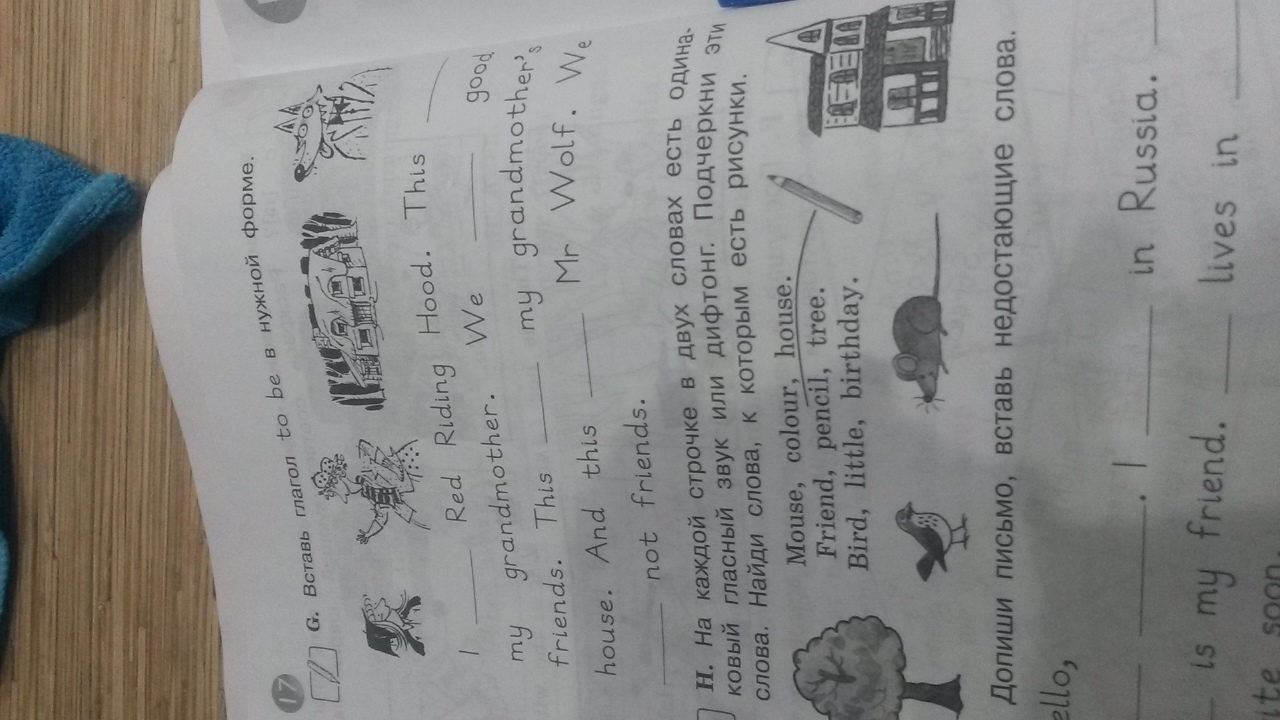 17
G. Вставь глагол to be в нужной форме.
I ____ Red Riding Hood. This ____
my grandmother. We ____ good
friends. This ____ my grandmother's
house. And this ____ Mr Wolf. We
____ not friends.
H. На каждой строчке в двух словах есть одина-
ковый гласный звук или дифтонг. Подчеркни эти
слова. Найди слова, к которым есть рисунки.
Mouse, colour, house.
Friend, pencil, tree.
Bird, little, birthday.
Допиши письмо, вставь недостающие слова.
ello,
____. I ____ in Russia. ____
____ is my friend. ____ lives in ____
ite soon.